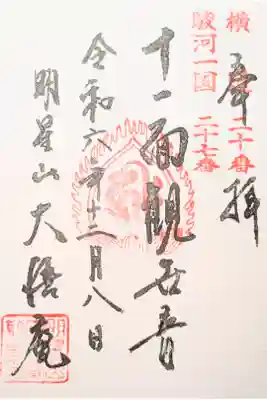 奉拝
横 二十番
駿河一国 二十七番
十一面観世音
令和六年十二月八日
明星山大悟庵